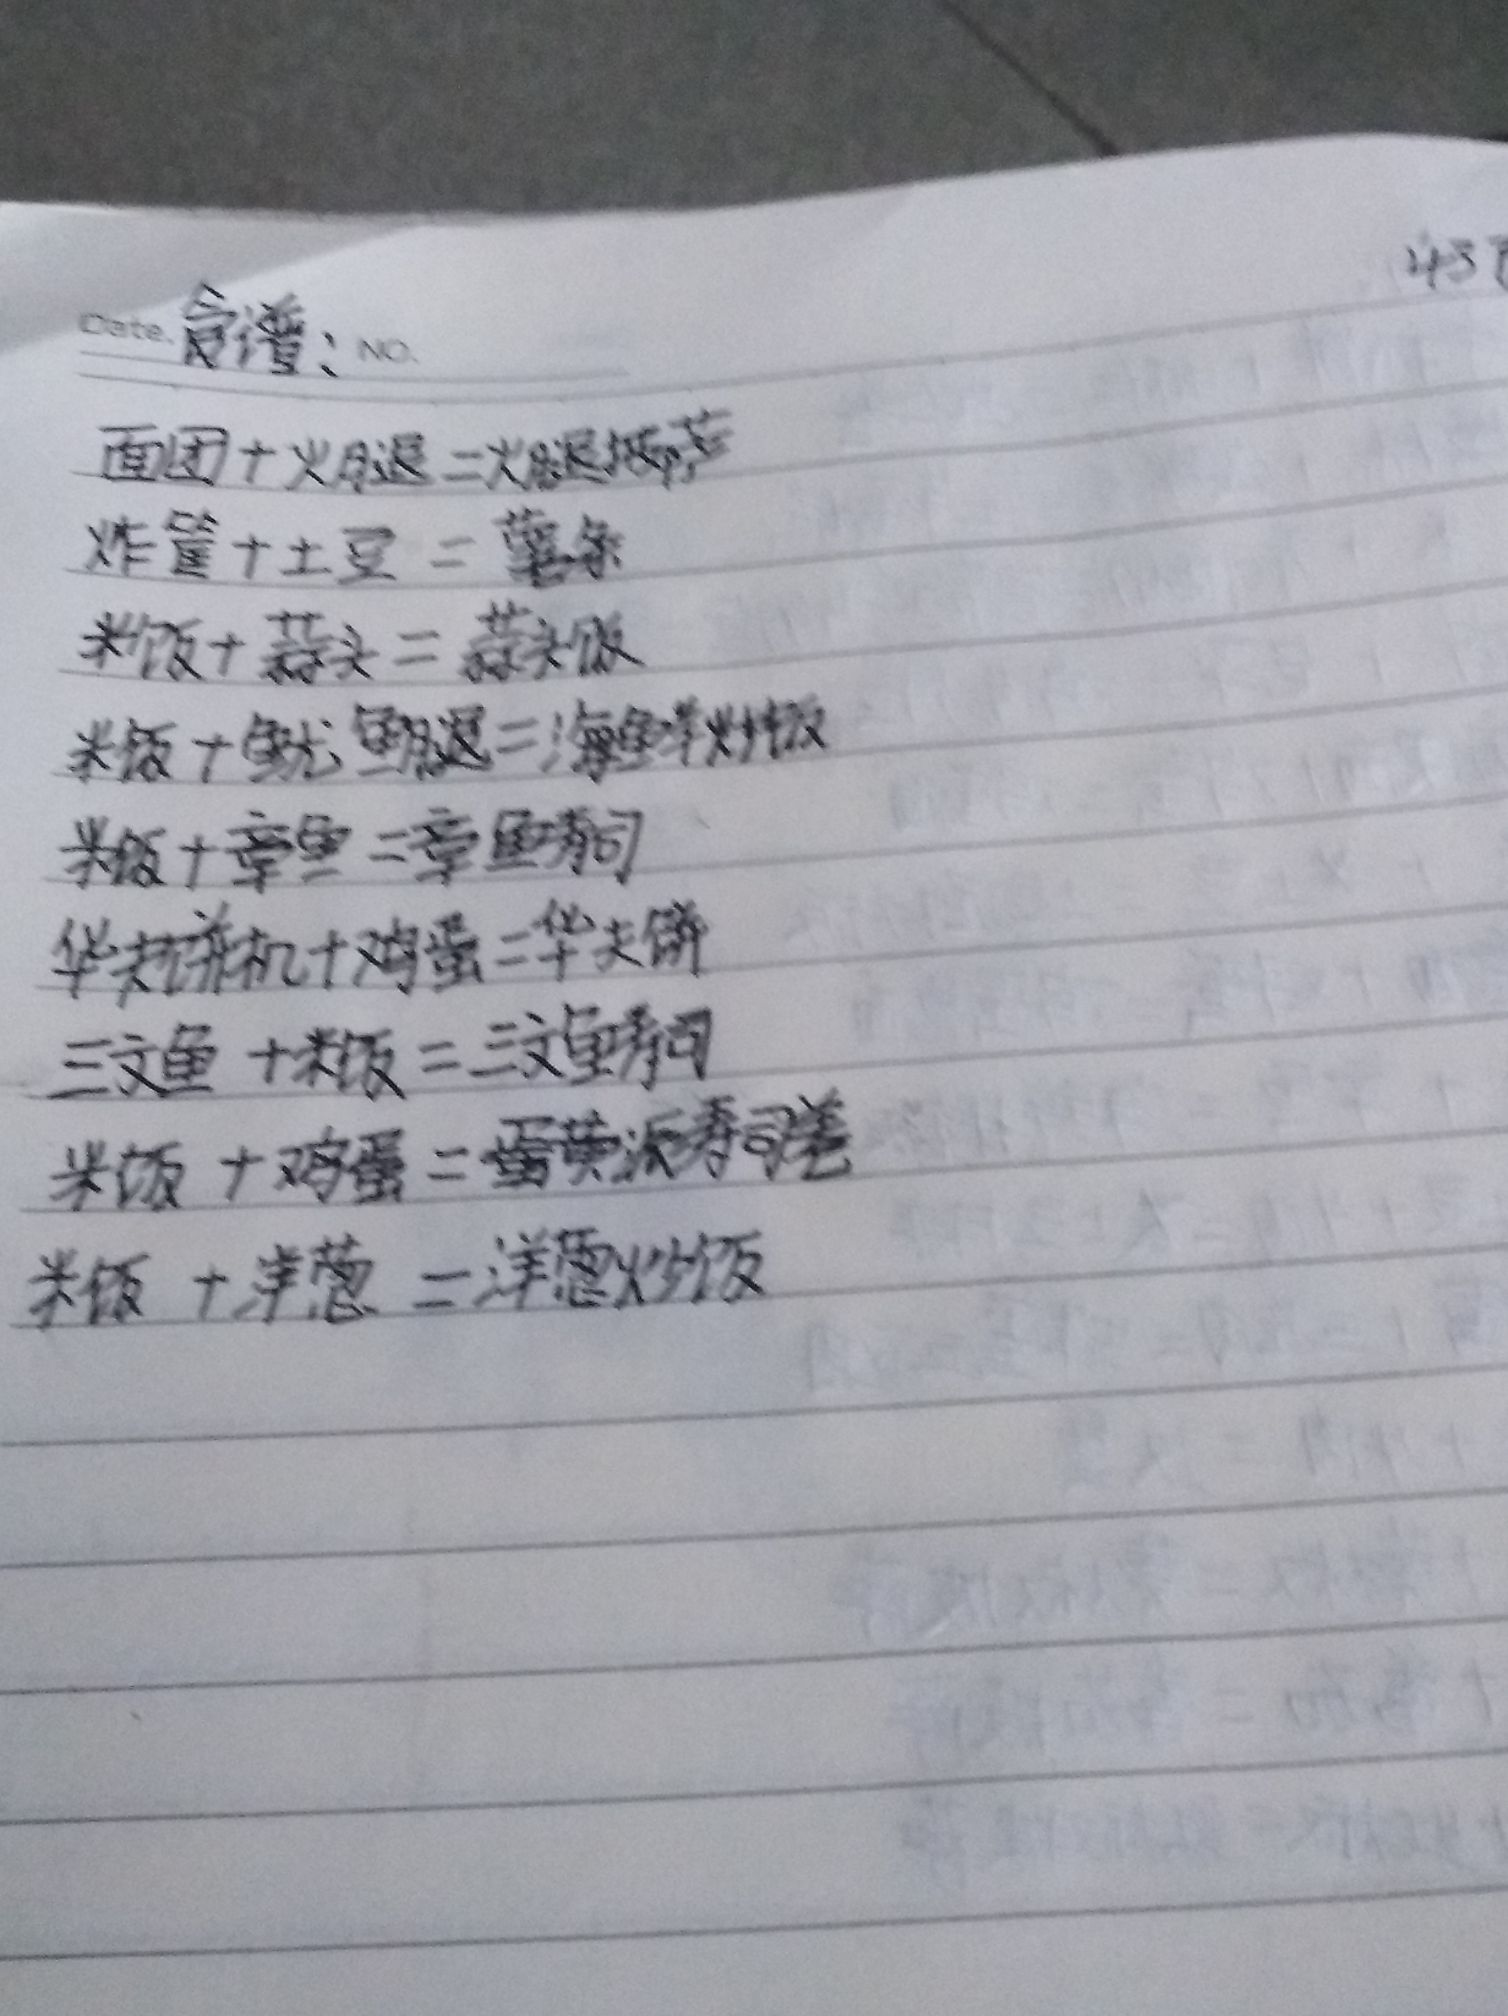 45页
Date. 食谱： NO.
面团+火腿=火腿披萨
炸筐+土豆 = 薯条
米饭+蒜头=蒜头饭
米饭+鱿鱼腿=海鲜炒饭
米饭+章鱼=章鱼寿司
华夫饼机+鸡蛋=华夫饼
三文鱼+米饭=三文鱼寿司
米饭+鸡蛋=蛋黄派寿司卷
米饭+洋葱=洋葱炒饭